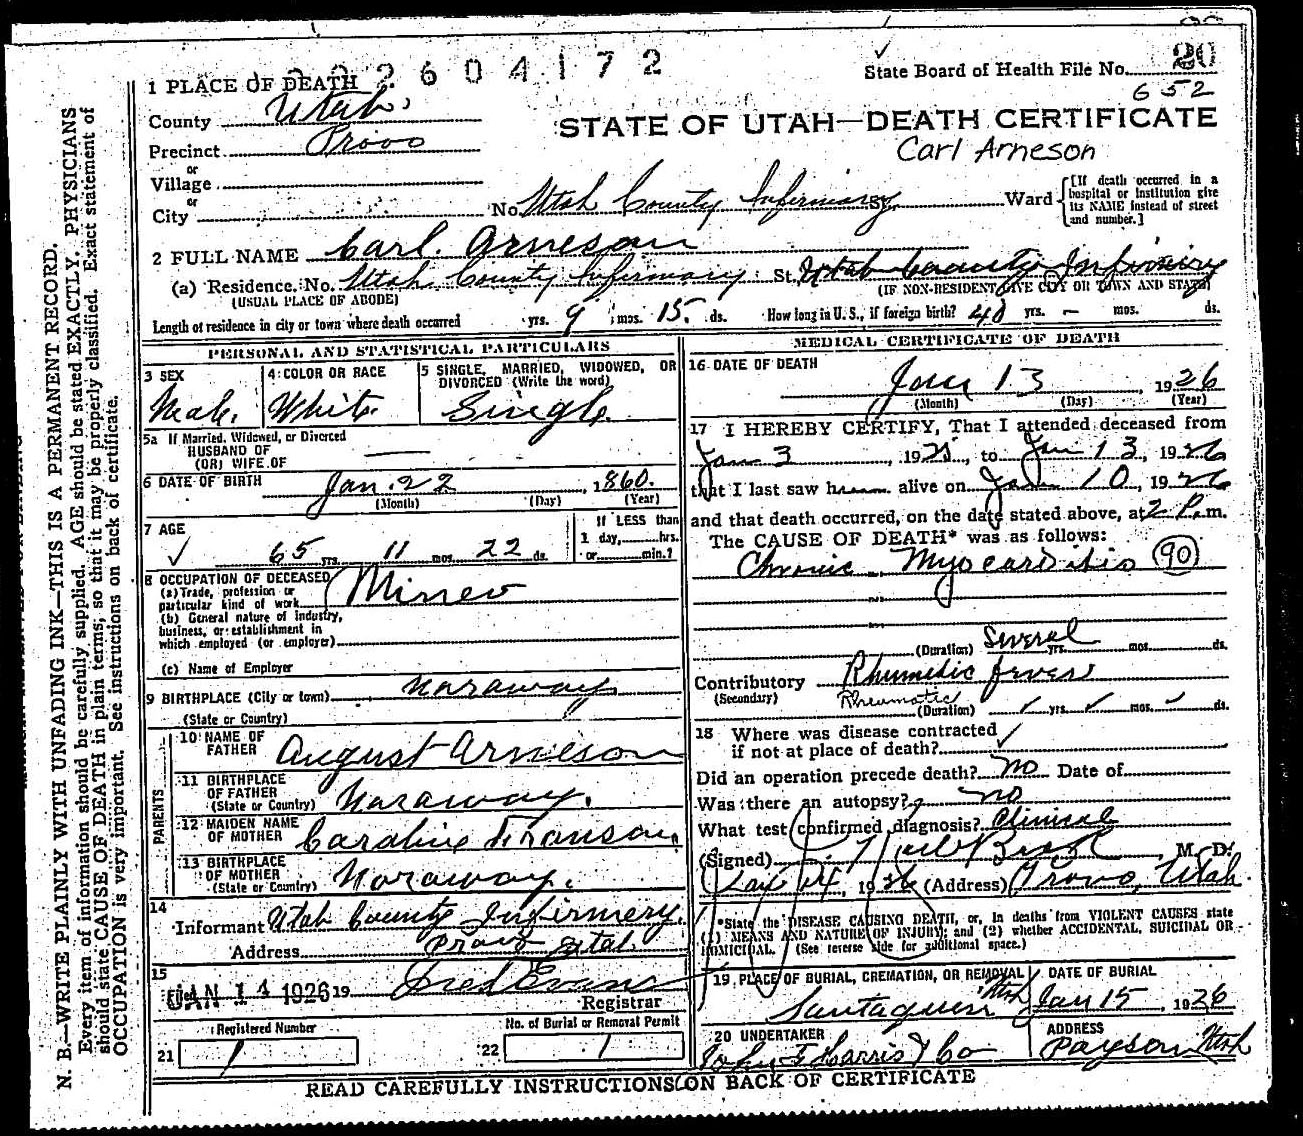 2604172
20
State Board of Health File No.
652
1 PLACE OF DEATH
County Utah.
STATE OF UTAH—DEATH CERTIFICATE
Precinct Provo
Carl Arneson
or
Village
or
City
No. Utah County Infirmary St. Ward
[If death occurred in a hospital or institution give its NAME instead of street and number.]
2 FULL NAME Carl. Arneson
(a) Residence. No. Utah County Infirmary St. Utah County Infirmiry
(USUAL PLACE OF ABODE) (IF NON-RESIDENT GIVE CITY OR TOWN AND STATE)
Length of residence in city or town where death occurred yrs. 9 mos. 15. ds. How long in U. S., if foreign birth? 40 yrs. — mos. ds.
PERSONAL AND STATISTICAL PARTICULARS
3 SEX
Male.
4 COLOR OR RACE
White.
5 SINGLE, MARRIED, WIDOWED, OR DIVORCED (Write the word)
Single.
5a If Married, Widowed, or Divorced
HUSBAND OF
(OR) WIFE OF
6 DATE OF BIRTH Jan. 22, 1860.
(Month) (Day) (Year)
7 AGE
65 yrs. 11 mos. 22 ds.
If LESS than
1 day, hrs.
or min.?
8 OCCUPATION OF DECEASED
(a) Trade, profession or
particular kind of work Miner
(b) General nature of industry,
business, or establishment in
which employed (or employer)
(c) Name of Employer
9 BIRTHPLACE (City or town) Noraway
(State or Country)
PARENTS
10 NAME OF
FATHER August Arneson
11 BIRTHPLACE
OF FATHER
(State or Country) Noraway.
12 MAIDEN NAME
OF MOTHER Caroline Franson.
13 BIRTHPLACE
OF MOTHER
(State or Country) Noraway.
14
Informant Utah County Infirmery.
Address Provo Utah.
15
Filed JAN 14 1926 19 Fred Evans
Registrar
Registered Number
21 1
No. of Burial or Removal Permit
22 1
MEDICAL CERTIFICATE OF DEATH
16 DATE OF DEATH
Jan 13 1926
(Month) (Day) (Year)
17 I HEREBY CERTIFY, That I attended deceased from
Jan 3, 1925, to Jan 13, 1926
that I last saw h alive on Jan 10, 1926
and that death occurred, on the date stated above, at 2 P. m.
The CAUSE OF DEATH* was as follows:
Chronic Myocarditis 90
(Duration) Several yrs. mos. ds.
Contributory Rhumetic fever
(Secondary) Rheumatic
(Duration) yrs. mos. ds.
18 Where was disease contracted
if not at place of death?
Did an operation precede death? No Date of
Was there an autopsy? no
What test confirmed diagnosis? Clinical
(Signed) M. D.
Jan 14, 1926 (Address) Provo, Utah.
*State the DISEASE CAUSING DEATH, or, in deaths from VIOLENT CAUSES state
(1) MEANS AND NATURE OF INJURY; and (2) whether ACCIDENTAL, SUICIDAL OR
HOMICIDAL. (See reverse side for additional space.)
19 PLACE OF BURIAL, CREMATION, OR REMOVAL
Santaquin Utah
DATE OF BURIAL
Jan 15 1926
20 UNDERTAKER
John F Harris & Co
ADDRESS
Payson Utah
READ CAREFULLY INSTRUCTIONS ON BACK OF CERTIFICATE
N. B.—WRITE PLAINLY WITH UNFADING INK—THIS IS A PERMANENT RECORD.
Every item of information should be carefully supplied. AGE should be stated EXACTLY. PHYSICIANS
should state CAUSE OF DEATH in plain terms, so that it may be properly classified. Exact statement of
OCCUPATION is very important. See instructions on back of certificate.